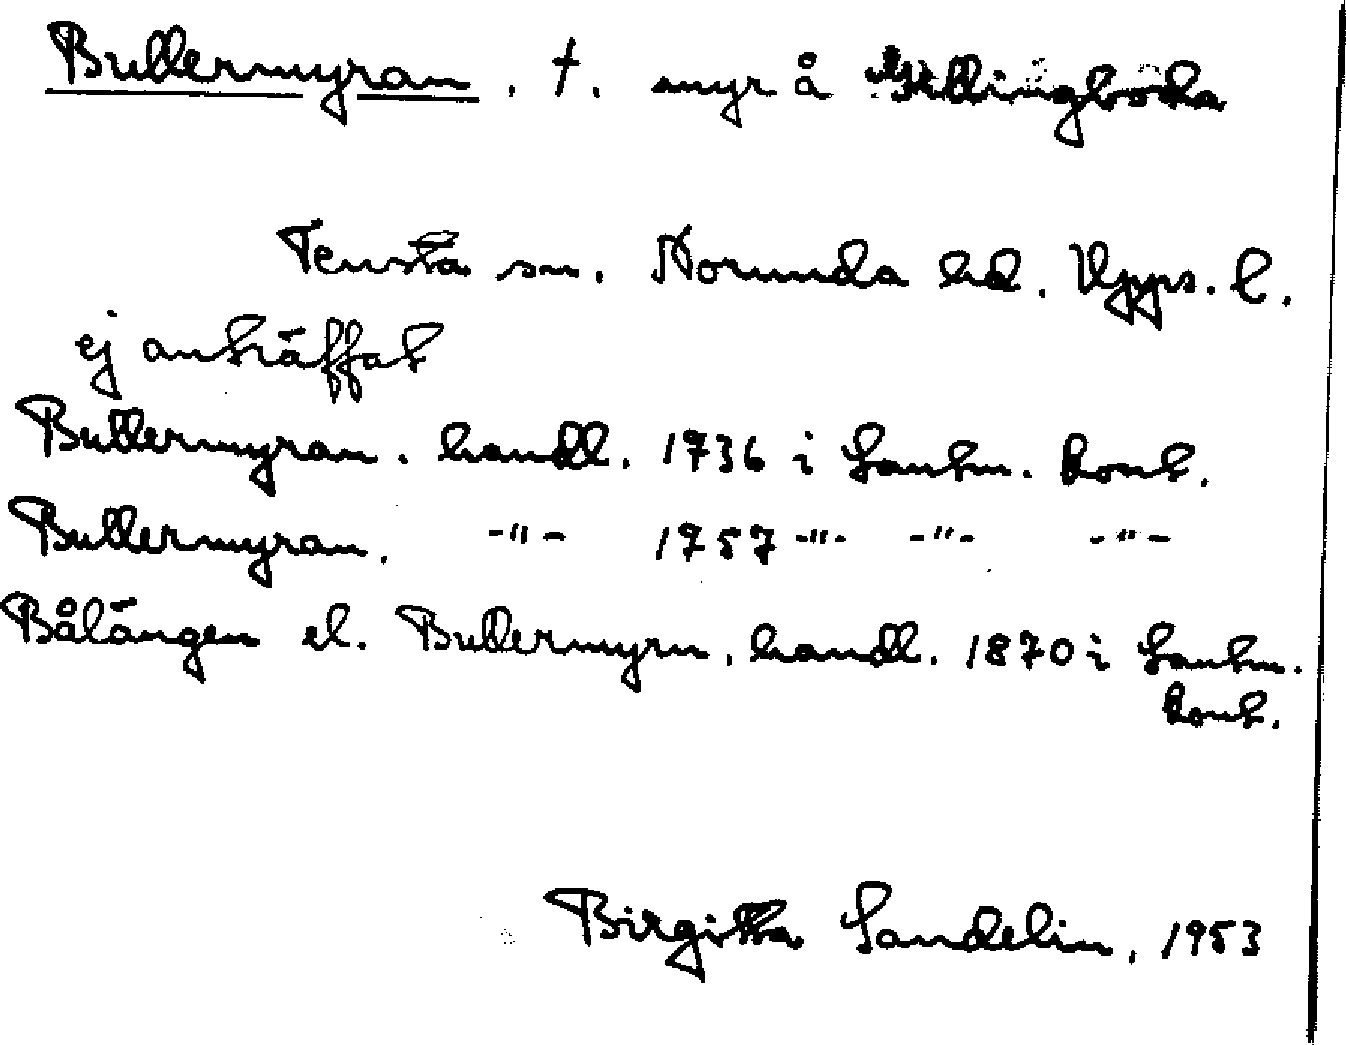 Bullermyran. †. myr å Illingboda
Tensta sn. Norunda hd. Upps. l.
ej anträffat
Bullermyran. handl. 1736 i Lantm. kont.
Bullermyran. -"- 1757 -"- -"- -"-
Bålängen el. Bullermyrn, handl. 1870 i Lantm.
kont.
Birgitta Sandelin, 1953